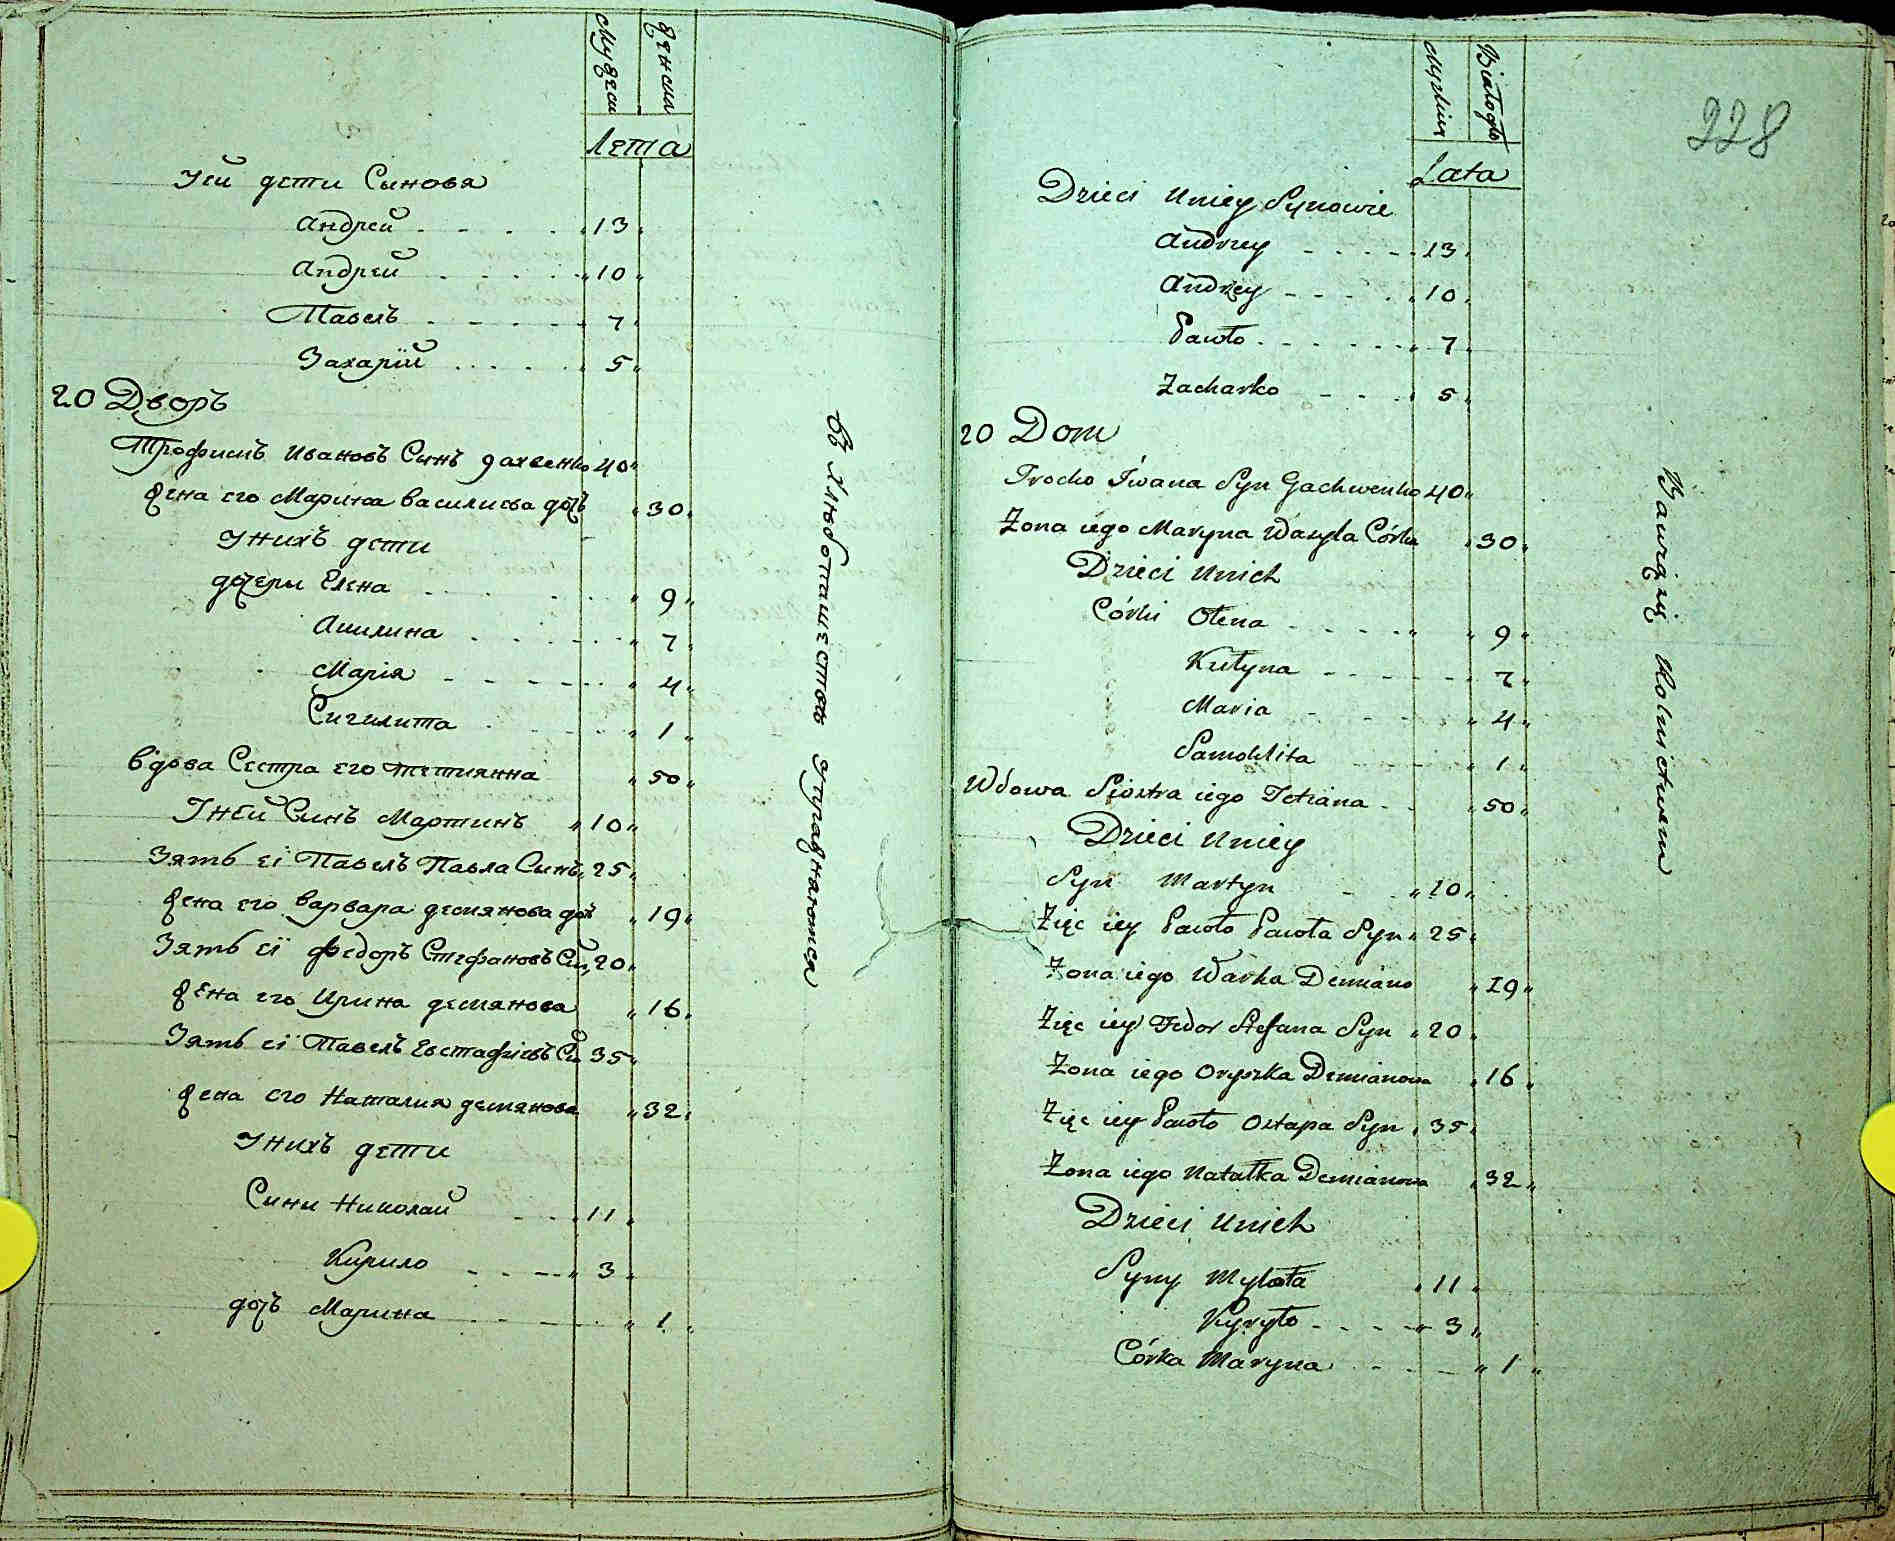 Мужеск
Женска
Лета
У ей дети Сынова
Андрей 13
Андрей 10
Павелъ 7
Захарій 5
20 Дворъ
Трофимъ Ивановъ Синъ Гахвенко 40
Жена его Марина Василиева дочъ 30
У нихъ дети
дочери Елена 9
Акилина 7
Марія 4
Сигклита 1
Вдова Сестра его Тетиянна 50
У ней Синъ Мартинъ 10
Зять еі Павелъ Павла Синъ 25
Жена его Варвара демянова дочъ 19
Зять еї Федоръ Стефановъ Си 20
Жена его Ирина демянова 16
Зять еї Павелъ Евстафиевъ Си 35
Жена его Наталия демянова 32
У нихъ дети
Сини Николай 11
Кирило 3
дочъ Марина 1
въ Хлѣбопашествѣ упражняются
228
Męzkiey
Białogło
Lata
Dzieci Uniey Synowie
Andrzey 13
Andrzey 10
Pawło 7
Zacharko 5
20 Dom
Trocho Iwana Syn Gachwenko 40
Żona iego Maryna Wasyla Córka 30
Dzieci Unich
Córki Ołena 9
Kułyna 7
Maria 4
Samoklita 1
Wdowa Siostra iego Tetiana 50
Dzieci Uniey
Syn Martyn 10
Zięć iey Pawło Pawła Syn 25
Żona iego Warka Demiano 19
Zięć iey Fedor Stefana Syn 20
Żona iego Oryszka Demianowa 16
Zięć iey Pawło Ostapa Syn 35
Żona iego Natałka Demianowa 32
Dzieci Unich
Syny Mykoła 11
Kyryło 3
Córka Maryna 1
Bawią się Rolnictwem